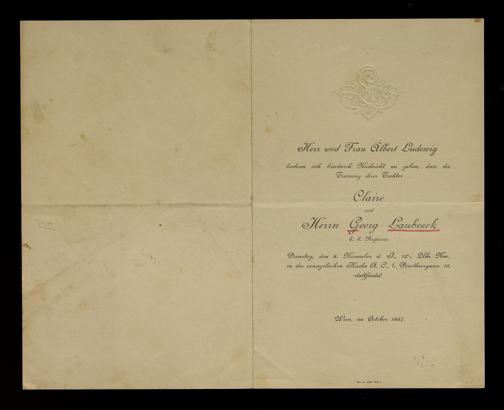 Herr und Frau Albert Ludewig
beehren sich hierdurch Nachricht zu geben, dass die
Trauung ihrer Tochter
Claire
mit
Herrn Georg Lauboeck
k. k. Professor
Dienstag, den 8. November d. J., 12 Uhr
in der evangelischen Kirche A. C., I., Dorotheergasse 18,
stattfindet.
Wien, im October 1887.